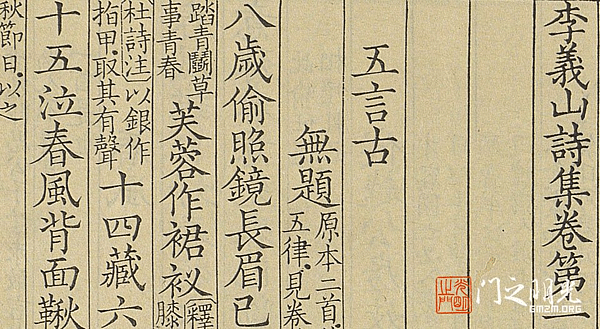 李義山詩集卷第一
五言古
無題
原本二首
五律.見卷
八歲偷照鏡長眉已
踏青鬭草
事青春
芙蓉作裙衩
釋
膝
杜詩注以銀作
指甲.取其有聲
十四藏六
十五泣春風背面鞦
秋節日.以之
门之明光
GMZM.ORG